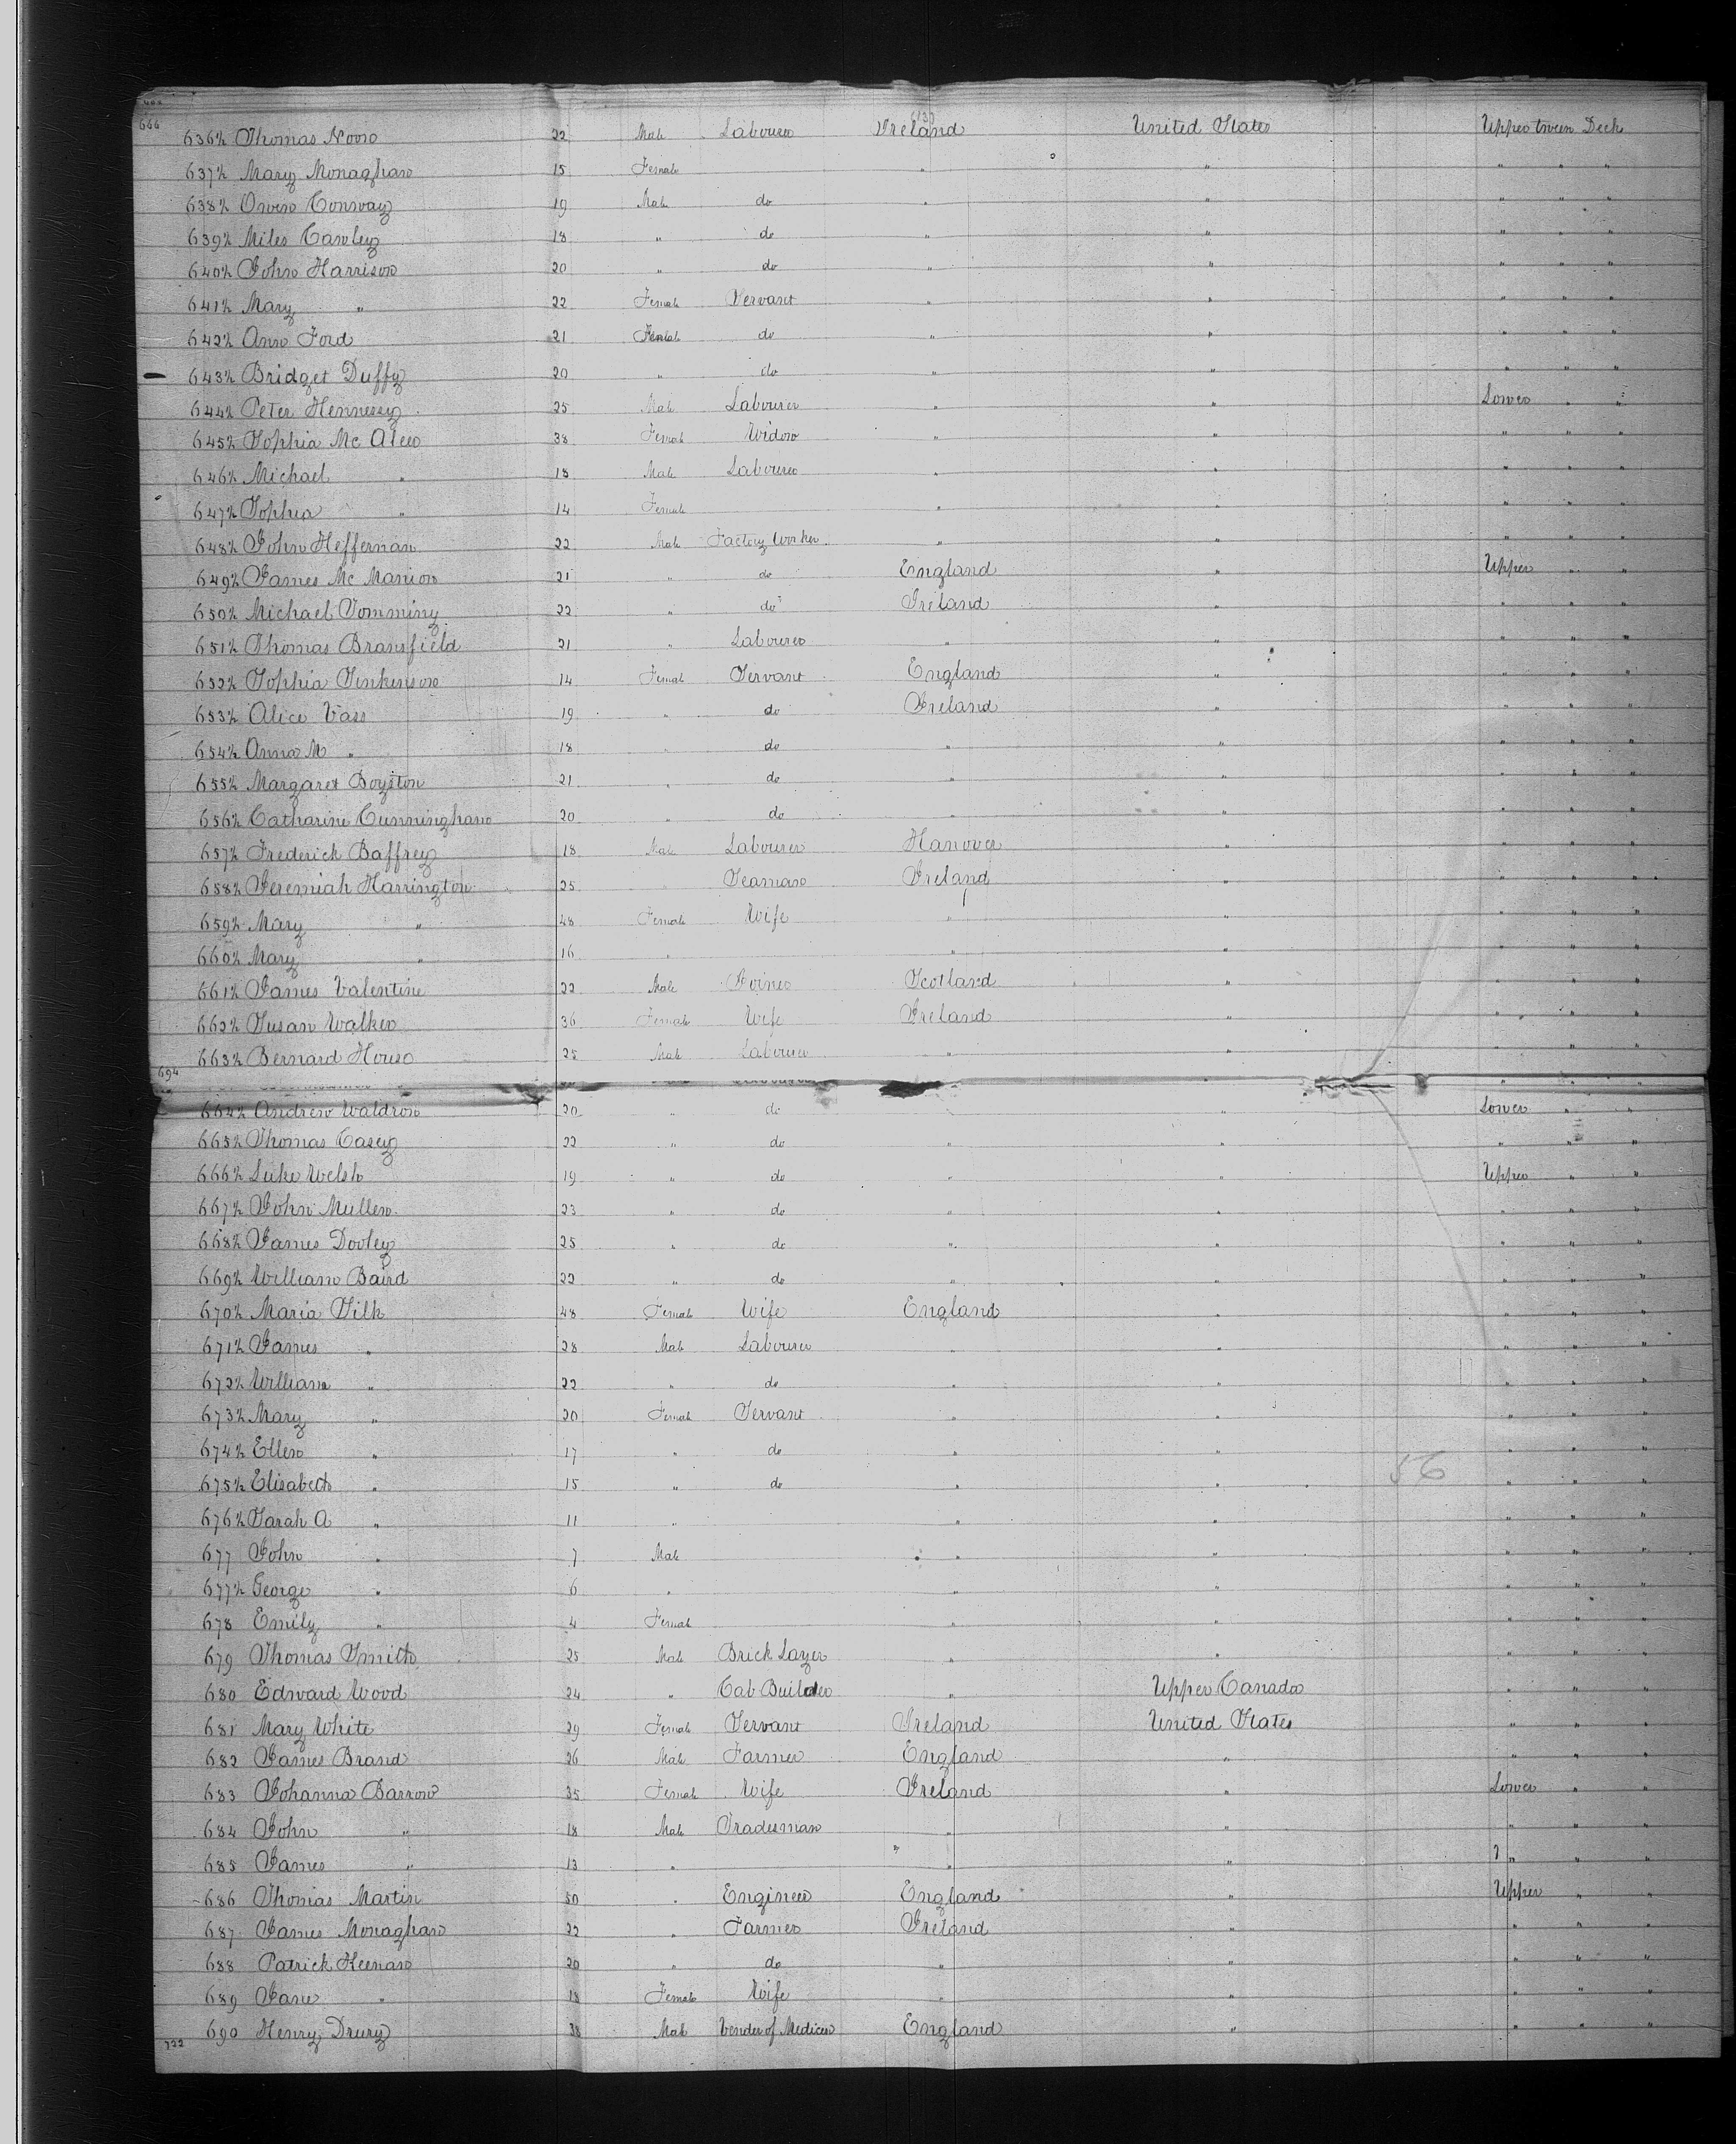 666
636½ Thomas Noon 22 Male Labourer Ireland United States Upper tween Deck
637½ Mary Monaghan 15 Female " " " " "
638½ Owen Conway 19 Male do " " " " "
639½ Miles Cawley 18 " do " " " " "
640½ John Harrison 20 " do " " " " "
641½ Mary " 22 Female Servant " " " " "
642½ Ann Ford 21 Female do " " " " "
643½ Bridget Duffy 20 " do " " " " "
644½ Peter Hennessy 25 Male Labourer " " Lower " "
645½ Sophia Mc Aleer 38 Female Widow " " " " "
646½ Michael " 18 Male Labourer " " " " "
647½ Sophia " 14 Female " " " " "
648½ John Heffernan 22 Male Factory Worker " " " " "
649½ James Mc Manion 21 " do England " Upper " "
650½ Michael Tomminy 22 " do Ireland " " " "
651½ Thomas Bransfield 21 " Labourer " " " " "
652½ Sophia Jenkinson 14 Female Servant England " " " "
653½ Alice Vass 19 " do Ireland " " " "
654½ Anna M " 18 " do " " " " "
655½ Margaret Boyston 21 " do " " " " "
656½ Catharine Cunningham 20 " do " " " " "
657½ Frederick Baffrey 18 Male Labourer Hanover " " " "
658½ Jeremiah Harrington 25 " Seaman Ireland " " " "
659½ Mary " 48 Female Wife " " " " "
660½ Mary " 16 " " " " " "
661½ James Valentine 22 Male Joiner Scotland " " " "
662½ Susan Walker 36 Female Wife Ireland " " " "
663½ Bernard Houro 25 Male Labourer " " " " "
694
664½ Andrew Waldron 20 " do " " Lower " "
665½ Thomas Casey 22 " do " " " " "
666½ Luke Welsh 19 " do " " Upper " "
667½ John Mullen 23 " do " " " " "
668½ James Dooley 25 " do " " " " "
669½ William Baird 22 " do " " " " "
670½ Maria Silk 48 Female Wife England " " " "
671½ James " 28 Male Labourer " " " " "
672½ William " 22 " do " " " " "
673½ Mary " 20 Female Servant " " " " "
674½ Ellen " 17 " do " " " " "
675½ Elisabeth " 15 " do " " 56 " " "
676½ Sarah A " 11 " " " " " "
677 John " 7 Male " " " " "
677½ George " 6 " " " " " "
678 Emily " 4 Female " " " " "
679 Thomas Smith 25 Male Brick Layer " " " " "
680 Edward Wood 24 " Cab Builder " Upper Canada " " "
681 Mary White 29 Female Servant Ireland United States " " "
682 James Brand 26 Male Farmer England " " " "
683 Johanna Barrow 35 Female Wife Ireland " Lower " "
684 John " 18 Male Tradesman " " " " "
685 James " 13 " " " " " "
686 Thomas Martin 50 " Engineer England " Upper " "
687 James Monaghan 22 " Farmer Ireland " " " "
688 Patrick Keenan 20 " do " " " " "
689 Jane " 18 Female Wife " " " " "
690 Henry Drury 38 Male Vender of Medicin England " " " "
722